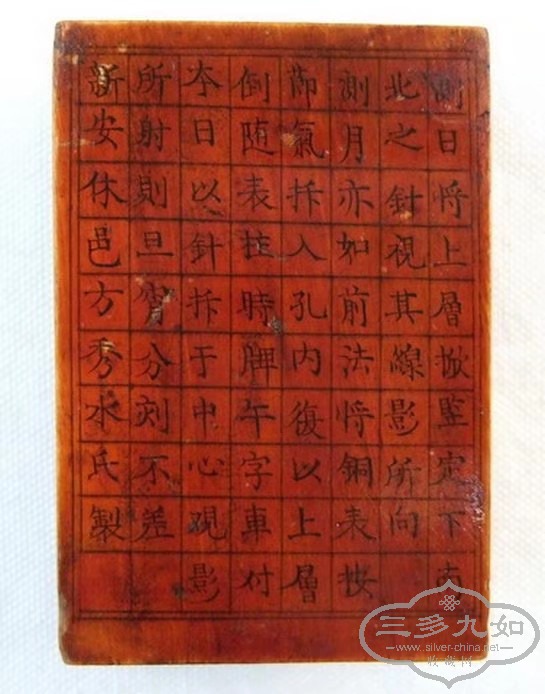 測日将上層掀竪定下南
北之針視其線影所向
測月亦如前法将銅表按
節氣拆入孔内復以上層
倒随表拄時牌午字車付
夲日以針拆于中心視影
所射則旦宵分刻不差
新安休邑方秀水氏製
三多九如
www.silver-china.net
收藏网